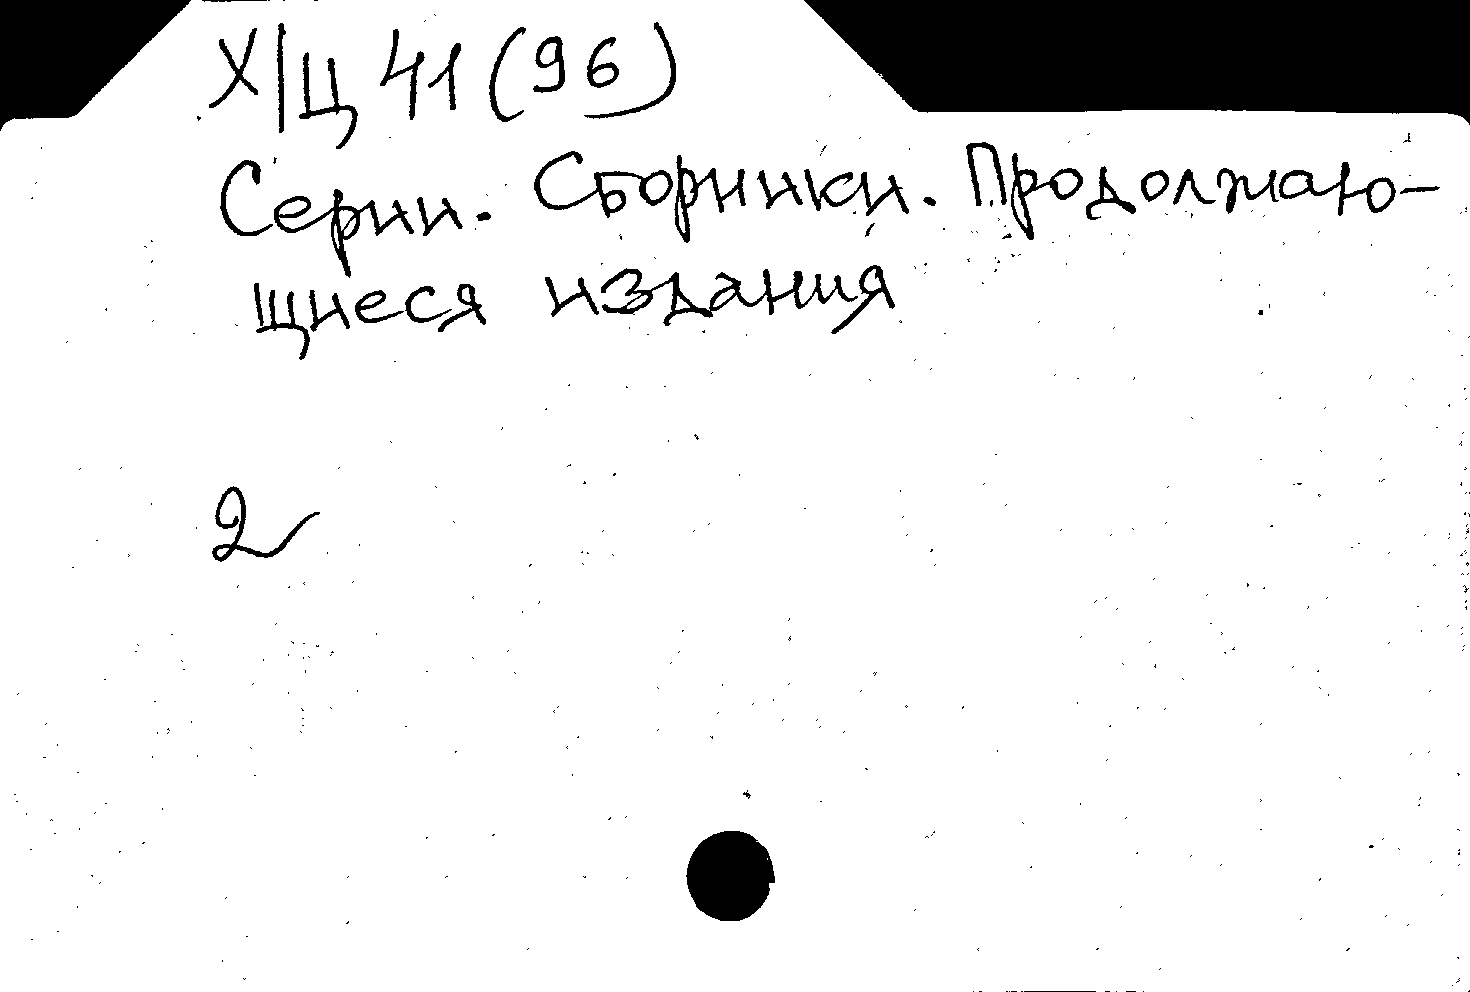 Х/Ц 41 (96)
Серии. Сборники. Продолжаю-
щиеся издания
2